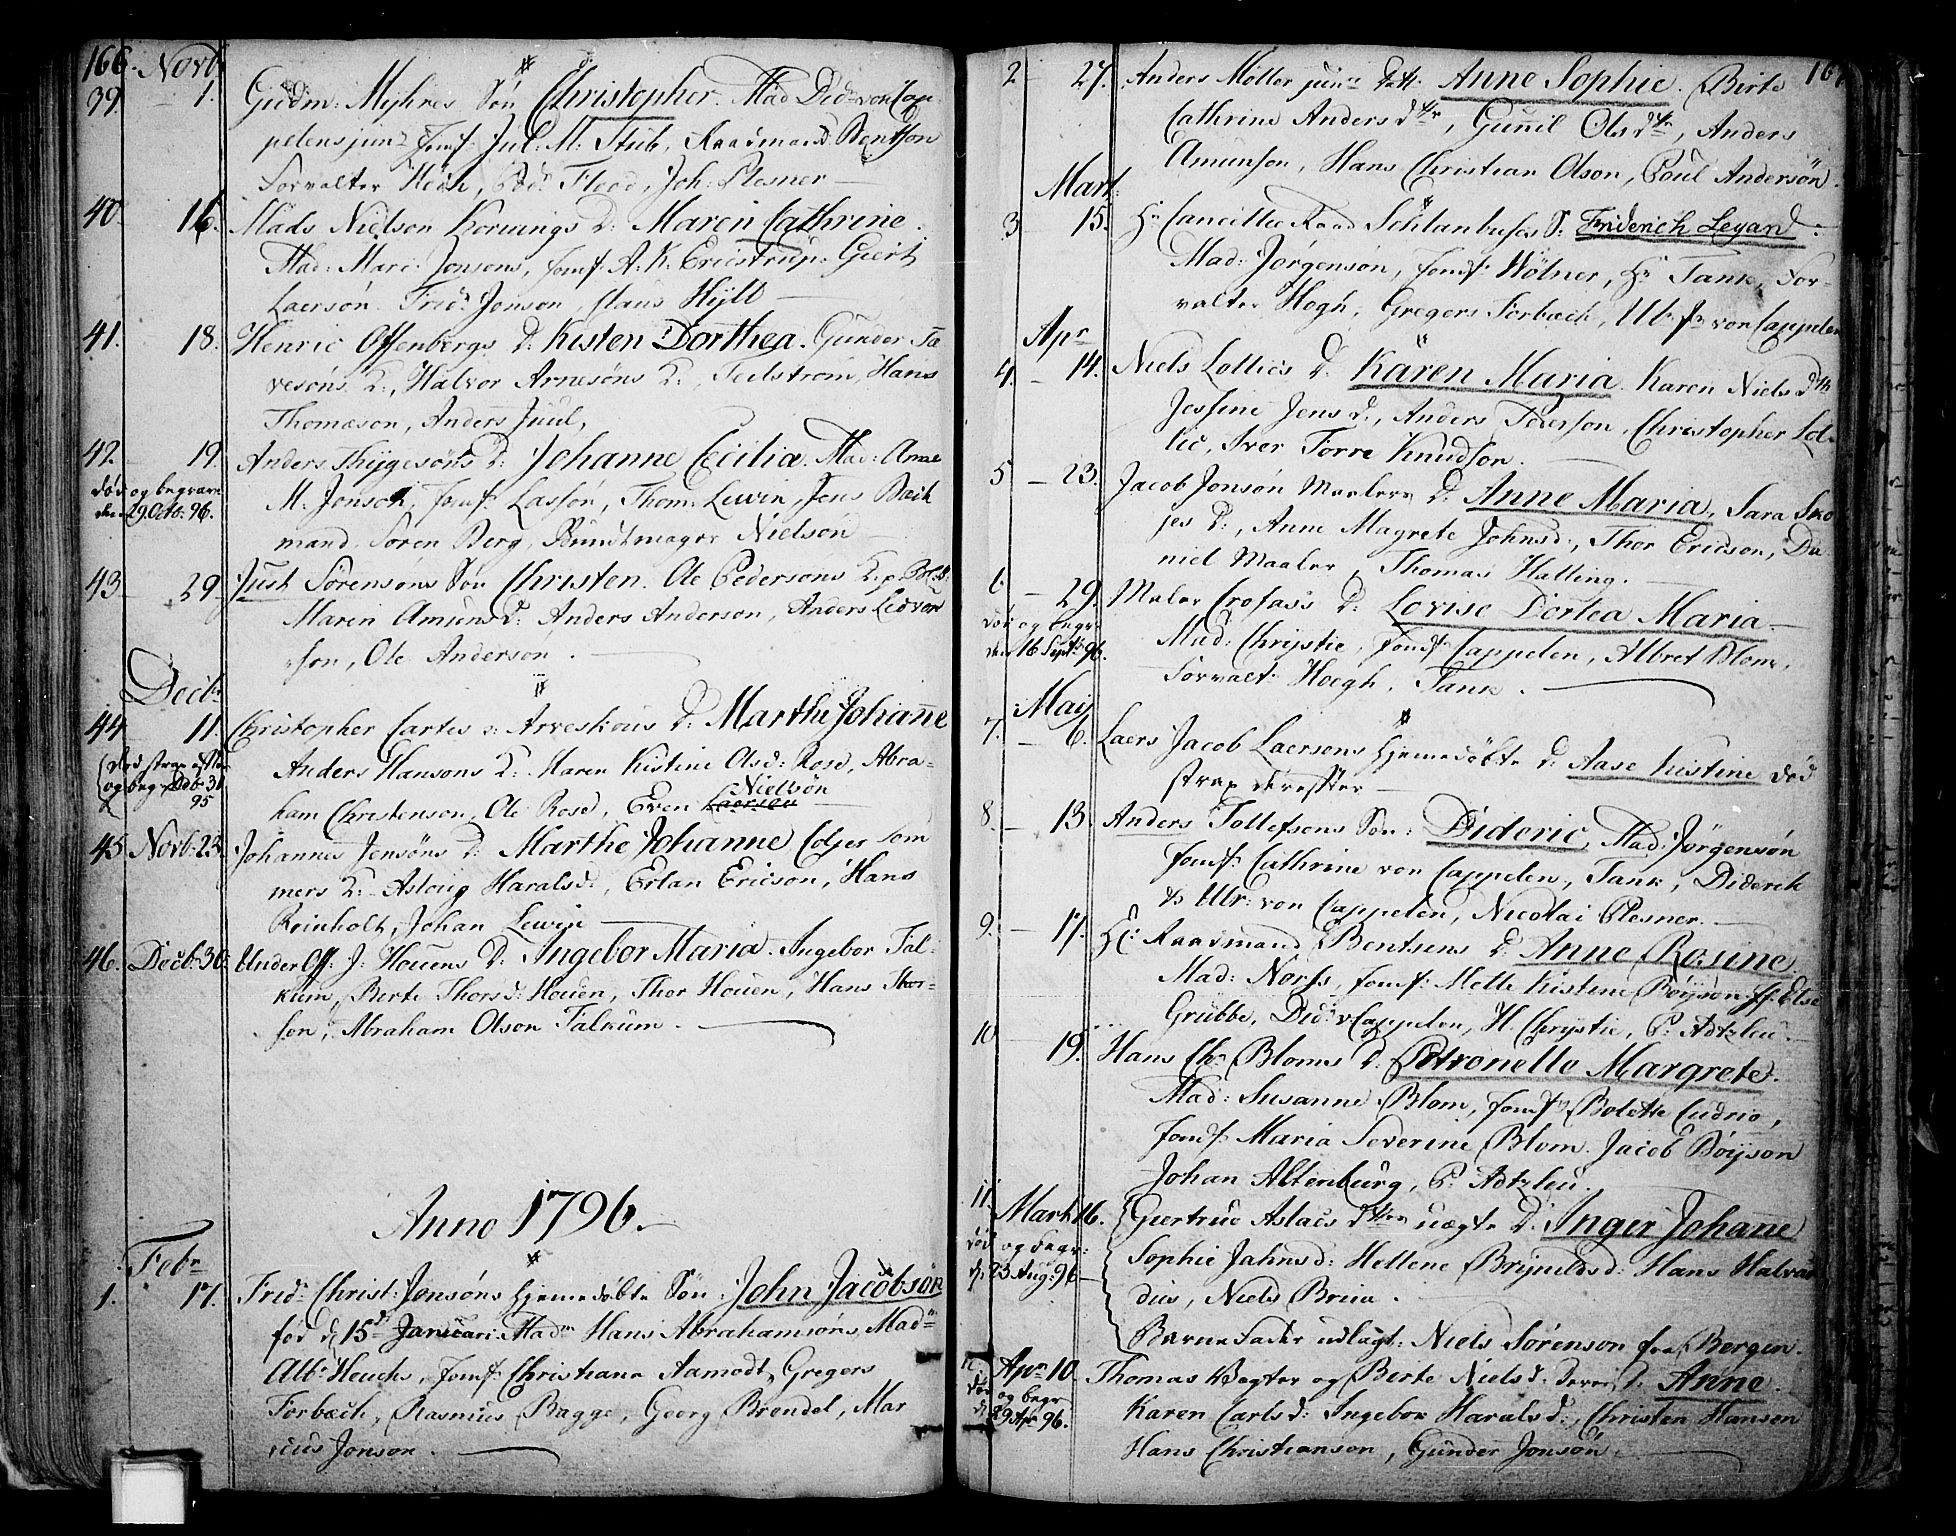 166. Novb.
39. 1. Gudm: Myhres Sön Christopher. Mad Did: von Cap-
pelen junr. Jomf: Jul: M: Stub, Raadmand Bentson
Forvalter Hoch, Flood, Joh: Plesner
40. 16. Mads Nielson Kornings D: Maren Cathrine.
Mad: Mari: Jonsons, Jomf: A: K: Ericstrup. Giert
Laersön. Frid: Jonson, Claus Hyll
41. 18. Henric Offenbergs D: Kisten Dorthea. Gunder Ta-
vesöns K:, Halvor Arnesöns K:, Feilström, Hans
Thomeson, Anders Juul,
42. 19. Anders Thygesöns D: Johanne Cecilia. Mad: Anne
död og begraven M. Jonson, Jomf: Lassön, Thom: Lewin, Jens Back
den 29 Octo: 96. mand. Sören Berg, Bundtmager Nielson
43 29 Just Sörensöns Sön Christen. Ole Pedersons K:
Maren Amunds D: Anders Anderson, Anders Ledvor
son, Ole Anderson.
Decbr
44 11. Christopher Carter Arveskous D: Marthe Johanne
(död strax efter Anders Hansons K: Maren Kistine Olsd: Rosd, Abra-
og beg Deb: 31 Nielsön
95 ham Christenson, Ole Rosd, Even Laerson
45 Novb: 23. Johannes Jensöns D: Marthe Johanne Coljer Som
mers K: Asloug Haralsd:, Erlan Ericson, Hans
Reinholt, Johan Lewin
46. Decb: 30. Under Off: J: Houens D: Ingebor Maria. Ingebor Fal-
kum, Berte Thorsd: Houen, Thor Houen, Hans Thor-
son, Abraham Olson Falkum.
Anno 1796.
Febr
1. 17. Frid: Christ: Jonsöns Hjemedöbte Sön: John Jacobsön
fod d. 15de Januari. Madm Hans Abrahamsöns, Madm
Alb: Heuchs, Jomf: Christiana Aamodt, Gregers
Forbech, Rasmus Bagge, Georg Brendel, Mar
cus Jonson.
167
2 27. Anders Möller junr Datt: Anne Sophie. Birte
Cathrine Anders dtr, Gunil Ols dtr, Anders
Amunson, Hans Christian Olson, Poul Andersön.
Mart:
3 15. Hr Cancellie Raad Schlanbusch S: Friderich Legard.
Mad: Jörgensön, Jomf: Hölner, Hr Tank, For-
valter Hoegh, Gregers Forbech, Ulr: Fr von Cappelen
Apr
4. 14. Niels Lollies D: Karen Maria. Karen Niels dtr
Jessine Jens d:, Anders Pederson, Christopher Lol-
lie, Iver Torre Knudson.
5 23. Jacob Jonsön Maalers D: Anne Maria, Sara Sko
jes D:, Anne Magrete Johnsd:, Thor Ericson, Da
niel Maaler, Thomas Halling.
6. 29. Maler Crofass D: Lovise Dortea Maria.
död og begr: Mad: Christie, Jomf: Cappelen, Albret Blom,
den 16 Septb: 96. Forvalt: Hoegh, Tank.
May
7. 6. Laers Jacob Laersons Hjemedöbte D: Aase Kistine död
strax derefter
8. 13. Anders Tollefsens Sön: Dideric, Mad: Jörgensön
Jomf: Cathrine von Cappelen, Tank, Diderik
& Ulr: von Cappelen, Nicolai Plesner.
9. 17. Hr: Raadmand Bentsens D: Anne Rosine
Mad: Norss, Jomf: Mette Kistine Böyson, Jf: Else
Grubbe, Did: v Cappelen, H Chrystie, P: Adtzleu.
10 19. Hans Chr Bloms D: Petronelle Margrete.
Mad: Susanne Blom, Jomfr Bolette Cudrio,
Jomf: Maria Severine Blom. Jacob Böyson
Johan Altenburg, P: Adtzleu.
11. Mart: 16. Giertrue Aslacs dtter uægte D: Inger Johanne
död og begr: Sophie Jahnsd: Hellene Brynildsd: Hans Halvar
d. 23 Aug: 96 dus, Niels Brun.
Barne Fader udlagt: Niels Sörenson fra Bergen.
12. Apr 10 Thomas Vegter og Birte Niels d: Deres D: Anne
död og begr Karen Carlsd: Ingebor Haralsd:, Christen Hansen
d. 29 Apr 96. Hans Christianson, Gunder Jonsön.